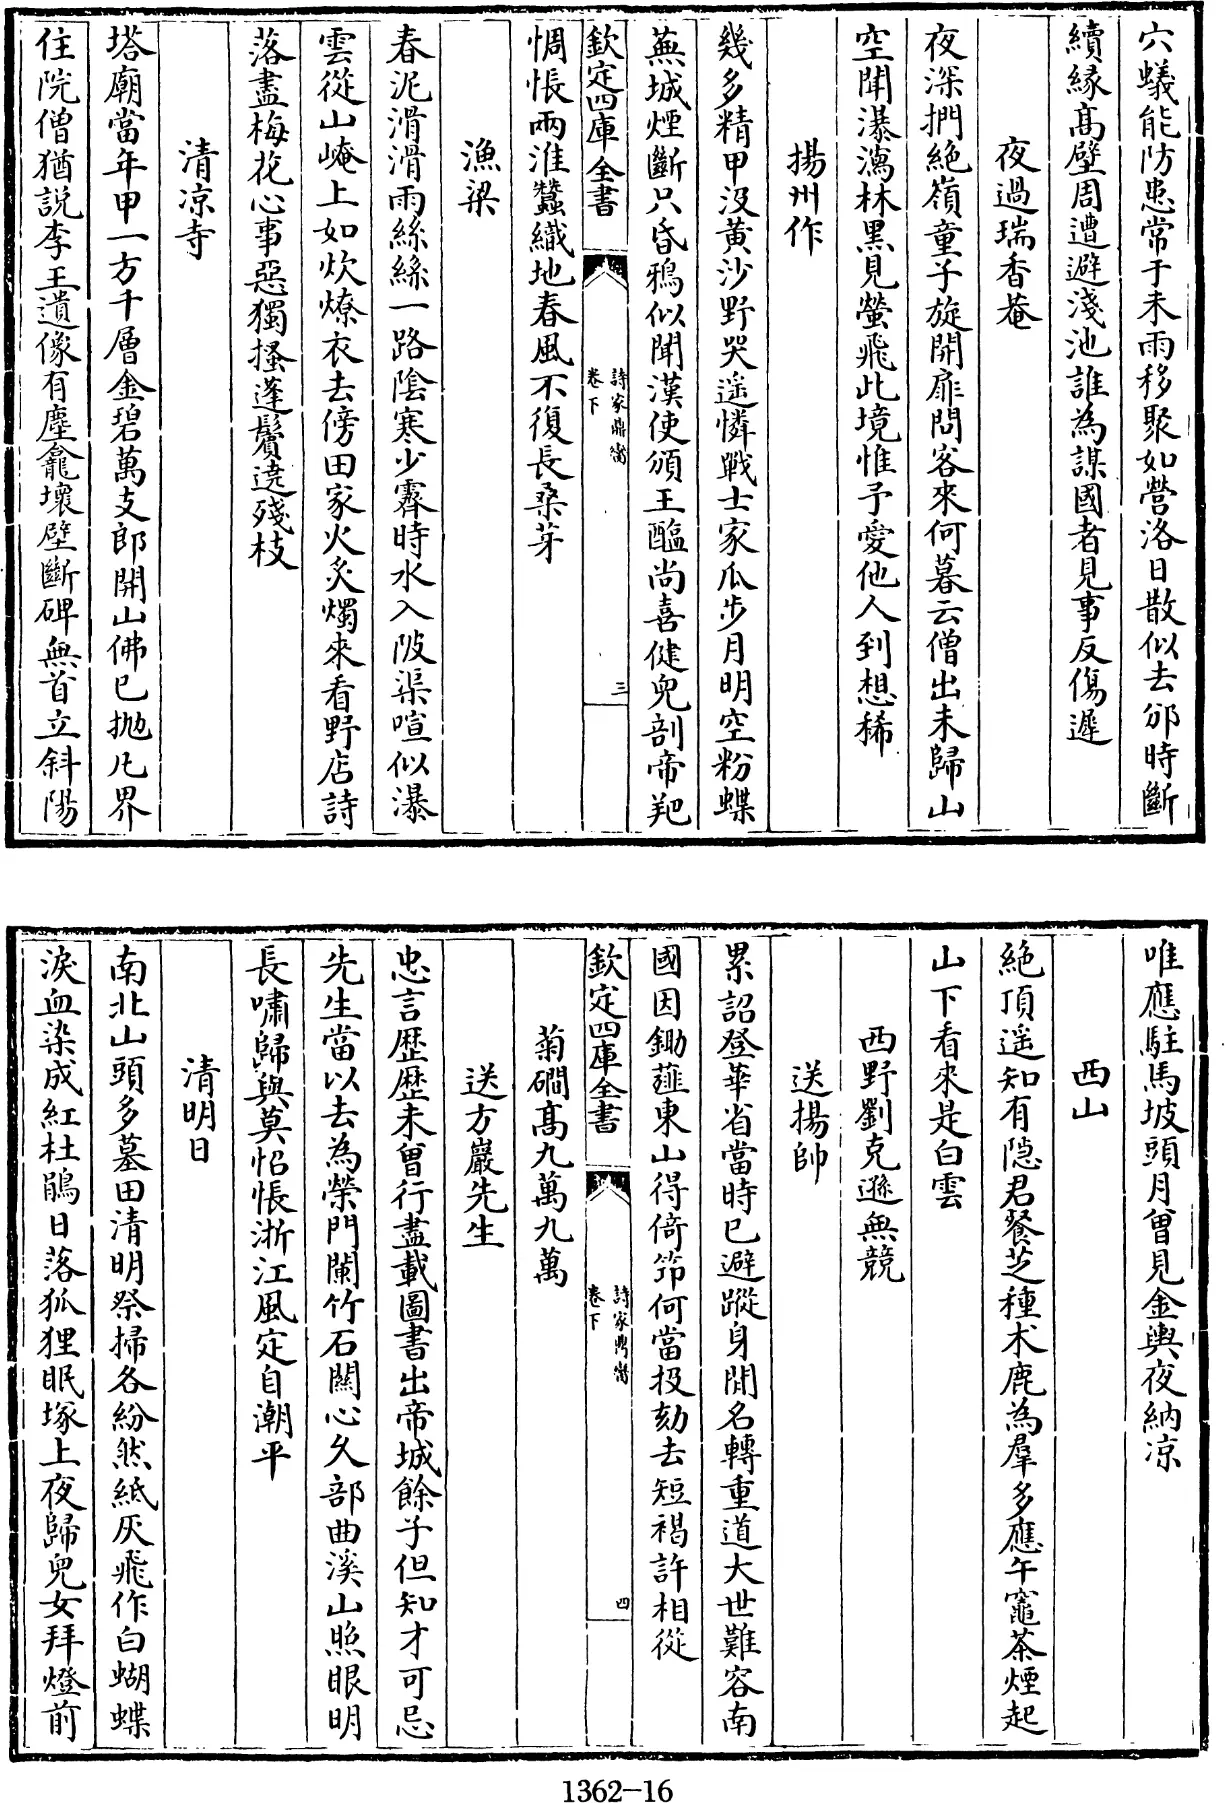 穴蟻能防患常于未雨移聚如營洛日散似去邠時斷
續緣髙壁周遭避淺池誰為謀國者見事反傷遲
夜過瑞香菴
夜深捫絶嶺童子旋開扉問客來何暮云僧出未歸山
空聞瀑瀉林黒見螢飛此境惟予愛他人到想稀
揚州作
幾多精甲没黄沙野哭遥憐戰士家瓜步月明空粉蝶
蕪城煙斷只昏鴉似聞漢使頒王醖尚喜健兒剖帝羓
欽定四庫全書
詩家鼎臠
卷下
三
惆悵兩淮蠶織地春風不復長桑芽
漁梁
春泥滑滑雨絲絲一路陰寒少霽時水入陂渠喧似瀑
雲從山崦上如炊燎衣去傍田家火炙燭來看野店詩
落盡梅花心事惡獨搔蓬鬢遶殘枝
清凉寺
塔廟當年甲一方千層金碧萬支郎開山佛已抛凡界
住院僧猶説李王遺像有塵龕壞壁斷碑無首立斜陽
唯應駐馬坡頭月曾見金輿夜納凉
西山
絶頂遥知有隠君餐芝種术鹿為羣多應午竈茶煙起
山下看來是白雲
西野劉克遜無競
送揚帥
累詔登華省當時已避蹤身閒名轉重道大世難容南
國因鋤薤東山得倚笻何當投劾去短褐許相從
欽定四庫全書
詩家鼎臠
卷下
四
菊磵髙九萬九萬
送方巖先生
忠言歴歴未曾行盡載圖書出帝城餘子但知才可忌
先生當以去為榮門闌竹石關心久部曲溪山照眼明
長嘯歸與莫怊悵浙江風定自潮平
清明日
南北山頭多墓田清明祭掃各紛然紙灰飛作白蝴蝶
淚血染成紅杜鵑日落狐狸眠塚上夜歸兒女拜燈前
1362-16